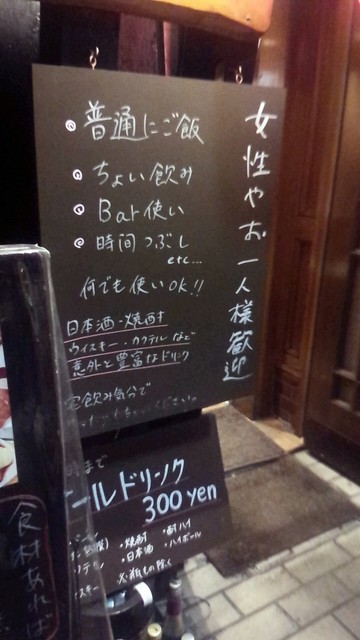 女性やお一人様歓迎
◎普通にご飯
◎ちょい飲み
◎Bar使い
◎時間つぶし
etc...
何でも使いOK!!
日本酒・焼酎
ウィスキー・カクテルなど
意外と豊富なドリンク
宅飲み気分で
時まで
ールドリンク
300yen
・焼酎 ・酎ハイ
・日本酒 ・ハイボール
スキー
※瓶もの除く
食材あれば